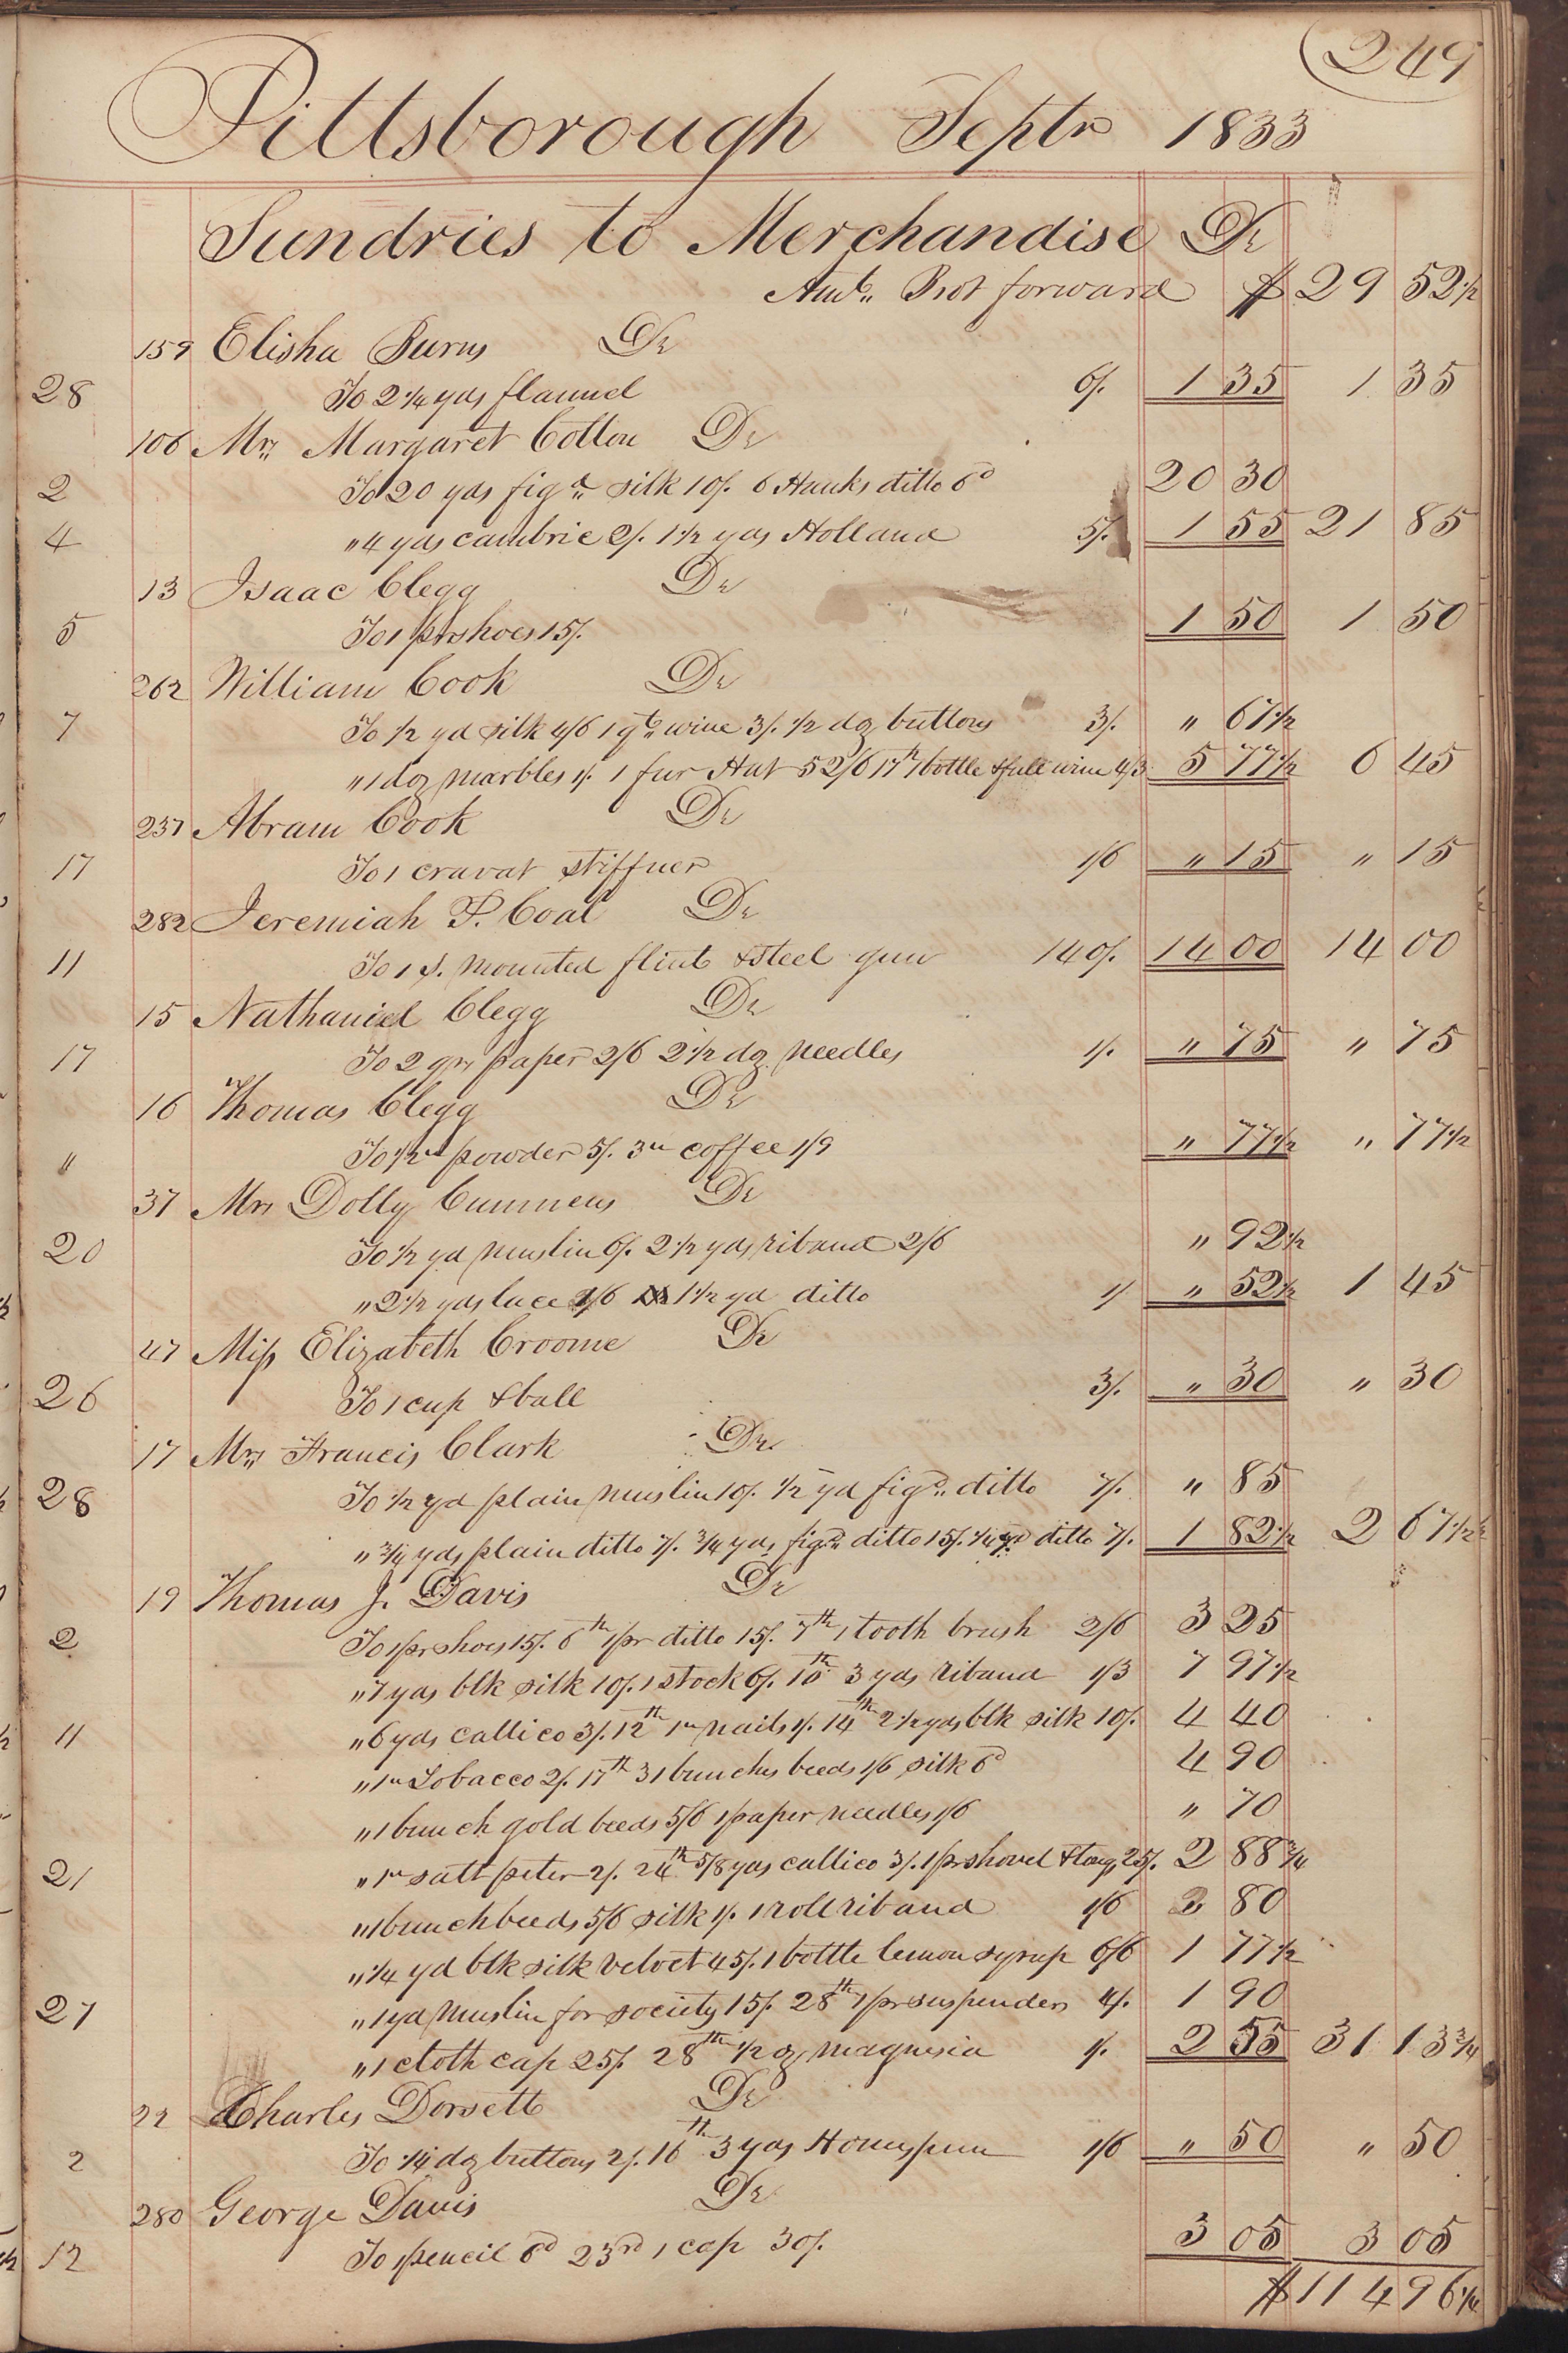 249
Pittsborough Septr 1833
Sundries to Merchandise Dr
Amt. Brot forward $ 29 52 1/2
159 Elisha Burns Dr
28 To 2 1/4 yds flannel 6/. 1 35 1 35
106 Mrs. Margaret Cotton Dr
2 To 20 yds figd. silk 10/. 6 Hanks ditto 6d 20 30
4 " 4 yds cambric 2/. 1 1/2 yds Holland 5/. 1 55 21 85
13 Isaac Clegg Dr
5 To 1 pr shoes 15/. 1 50 1 50
262 William Cook Dr
7 To 1/2 yd silk 4/6 1 qt. wine 3/. 1/2 dz buttons 3/. " 67 1/2
" 1 dz marbles 1/. 1 fur Hat 52/6 17th 1 bottle & full wine 4/3 5 77 1/2 6 45
237 Abram Cook Dr
17 To 1 cravat stiffner 1/6 " 15 " 15
282 Jeremiah P. Coal Dr
11 To 1 S. mounted flint & steel gun 140/. 14 00 14 00
15 Nathaniel Clegg Dr
17 To 2 qrs paper 2/6 2 1/2 dz needles 1/. " 75 " 75
16 Thomas Clegg Dr
" To 1/2 " powder 5/. 3 " coffee 1/9 " 77 1/2 " 77 1/2
37 Mrs Dolly Cummens Dr
20 To 1/2 yd muslin 6/. 2 1/2 yds riband 2/6 " 92 1/2
" 2 1/2 yds lace 1/6 1 1/2 yd ditto 1/ " 52 1/2 1 45
47 Miss Elizabeth Croome Dr
26 To 1 cup & ball 3/. " 30 " 30
17 Mrs. Francis Clark Dr
28 To 1/2 yd plain muslin 10/. 1/2 yd figd. ditto 7/. " 85
" 3/4 yds plain ditto 7/. 3/4 yds figd. ditto 15/. 1/4 yd ditto 7/. 1 82 1/2 2 67 1/2
19 Thomas J. Davis Dr
2 To 1 pr shoes 15/. 6th 1 pr ditto 15/. 7th 1 tooth brush 2/6 3 25
" 7 yds blk silk 10/. 1 stock 6/. 10th 3 yds riband 1/3 7 97 1/2
11 " 6 yds callico 3/. 12th 1 " nails 1/. 14th 2 1/2 yds blk silk 10/. 4 40
" 1 " Tobacco 2/. 17th 31 bunches beeds 1/6 silk 6d 4 90
" 1 bunch gold beeds 5/6 1 paper needles 1/6 " 70
21 " 1 " salt peter 2/. 24th 5/8 yds callico 3/. 1 pr shovel & tongs 25/. 2 88 3/4
" 1 bunch beeds 5/6 silk 1/. 1 roll riband 1/6 80
" 1/4 yd blk silk velvet 45/. 1 bottle lemon syrup 6/6 1 77 1/2
27 " 1 yd muslin for society 15/. 28th 1 pr suspenders 4/. 1 90
" 1 cloth cap 25/. 28th 1/2 oz magnesia 1/. 2 55 31 13 3/4
22 Charles Dorsett Dr
2 To 1/4 dz buttons 2/. 16th 3 yds Homespun 1/6 " 50 " 50
280 George Davis Dr
12 To 1 pencil 6d 23rd 1 cap 30/. 3 05 3 05
$114 96 1/4